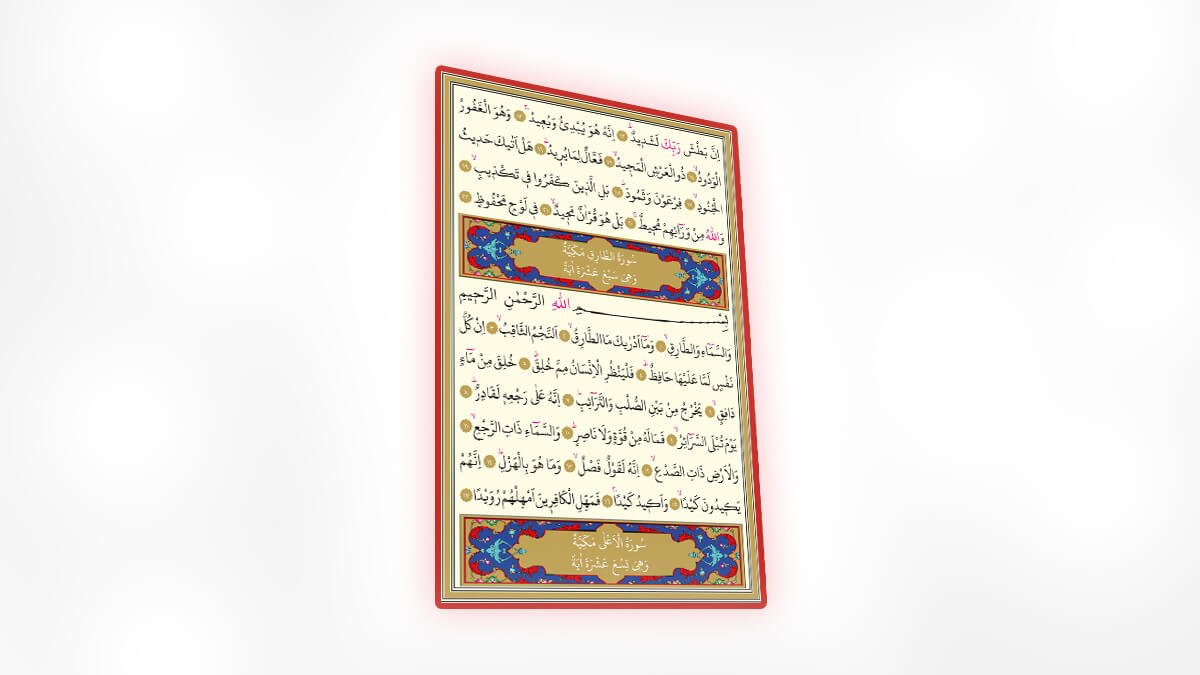 اِنَّ بَطْشَ رَبِّكَ لَشَد۪يدٌۜ ﴿١٢﴾ اِنَّهُ هُوَ يُبْدِئُ وَيُع۪يدُۚ ﴿١٣﴾ وَهُوَ الْغَفُورُ
الْوَدُودُۙ ﴿١٤﴾ ذُو الْعَرْشِ الْمَج۪يدُۙ ﴿١٥﴾ فَعَّالٌ لِمَا يُر۪يدُۜ ﴿١٦﴾ هَلْ اَتٰيكَ حَد۪يثُ
الْجُنُودِۙ ﴿١٧﴾ فِرْعَوْنَ وَثَمُودَۜ ﴿١٨﴾ بَلِ الَّذ۪ينَ كَفَرُوا ف۪ي تَكْذ۪يبٍۙ ﴿١٩﴾
وَاللّٰهُ مِنْ وَرَٓائِهِمْ مُح۪يطٌۚ ﴿٢٠﴾ بَلْ هُوَ قُرْاٰنٌ مَج۪يدٌۙ ﴿٢١﴾ ف۪ي لَوْحٍ مَحْفُوظٍ ﴿٢٢﴾
سُورَةُ الطَّارِقِ مَكِّيَّةٌ
وَهِيَ سَبْعَ عَشْرَةَ اٰيَةً
بِسْمِ اللّٰهِ الرَّحْمٰنِ الرَّح۪يمِ
وَالسَّمَٓاءِ وَالطَّارِقِۙ ﴿١﴾ وَمَٓا اَدْرٰيكَ مَا الطَّارِقُۙ ﴿٢﴾ اَلنَّجْمُ الثَّاقِبُۙ ﴿٣﴾ اِنْ كُلُّ
نَفْسٍ لَمَّا عَلَيْهَا حَافِظٌۜ ﴿٤﴾ فَلْيَنْظُرِ الْاِنْسَانُ مِمَّ خُلِقَۜ ﴿٥﴾ خُلِقَ مِنْ مَٓاءٍ
دَافِقٍۙ ﴿٦﴾ يَخْرُجُ مِنْ بَيْنِ الصُّلْبِ وَالتَّرَٓائِبِۜ ﴿٧﴾ اِنَّهُ عَلٰى رَجْعِه۪ لَقَادِرٌۜ ﴿٨﴾
يَوْمَ تُبْلَى السَّرَٓائِرُۙ ﴿٩﴾ فَمَا لَهُ مِنْ قُوَّةٍ وَلَا نَاصِرٍۜ ﴿١٠﴾ وَالسَّمَٓاءِ ذَاتِ الرَّجْعِۙ ﴿١١﴾
وَالْاَرْضِ ذَاتِ الصَّدْعِۙ ﴿١٢﴾ اِنَّهُ لَقَوْلٌ فَصْلٌۙ ﴿١٣﴾ وَمَا هُوَ بِالْهَزْلِۜ ﴿١٤﴾ اِنَّهُمْ
يَك۪يدُونَ كَيْدًاۙ ﴿١٥﴾ وَاَك۪يدُ كَيْدًاۚ ﴿١٦﴾ فَمَهِّلِ الْكَافِر۪ينَ اَمْهِلْهُمْ رُوَيْدًا ﴿١٧﴾
سُورَةُ الْاَعْلٰى مَكِّيَّةٌ
وَهِيَ تِسْعَ عَشْرَةَ اٰيَةً